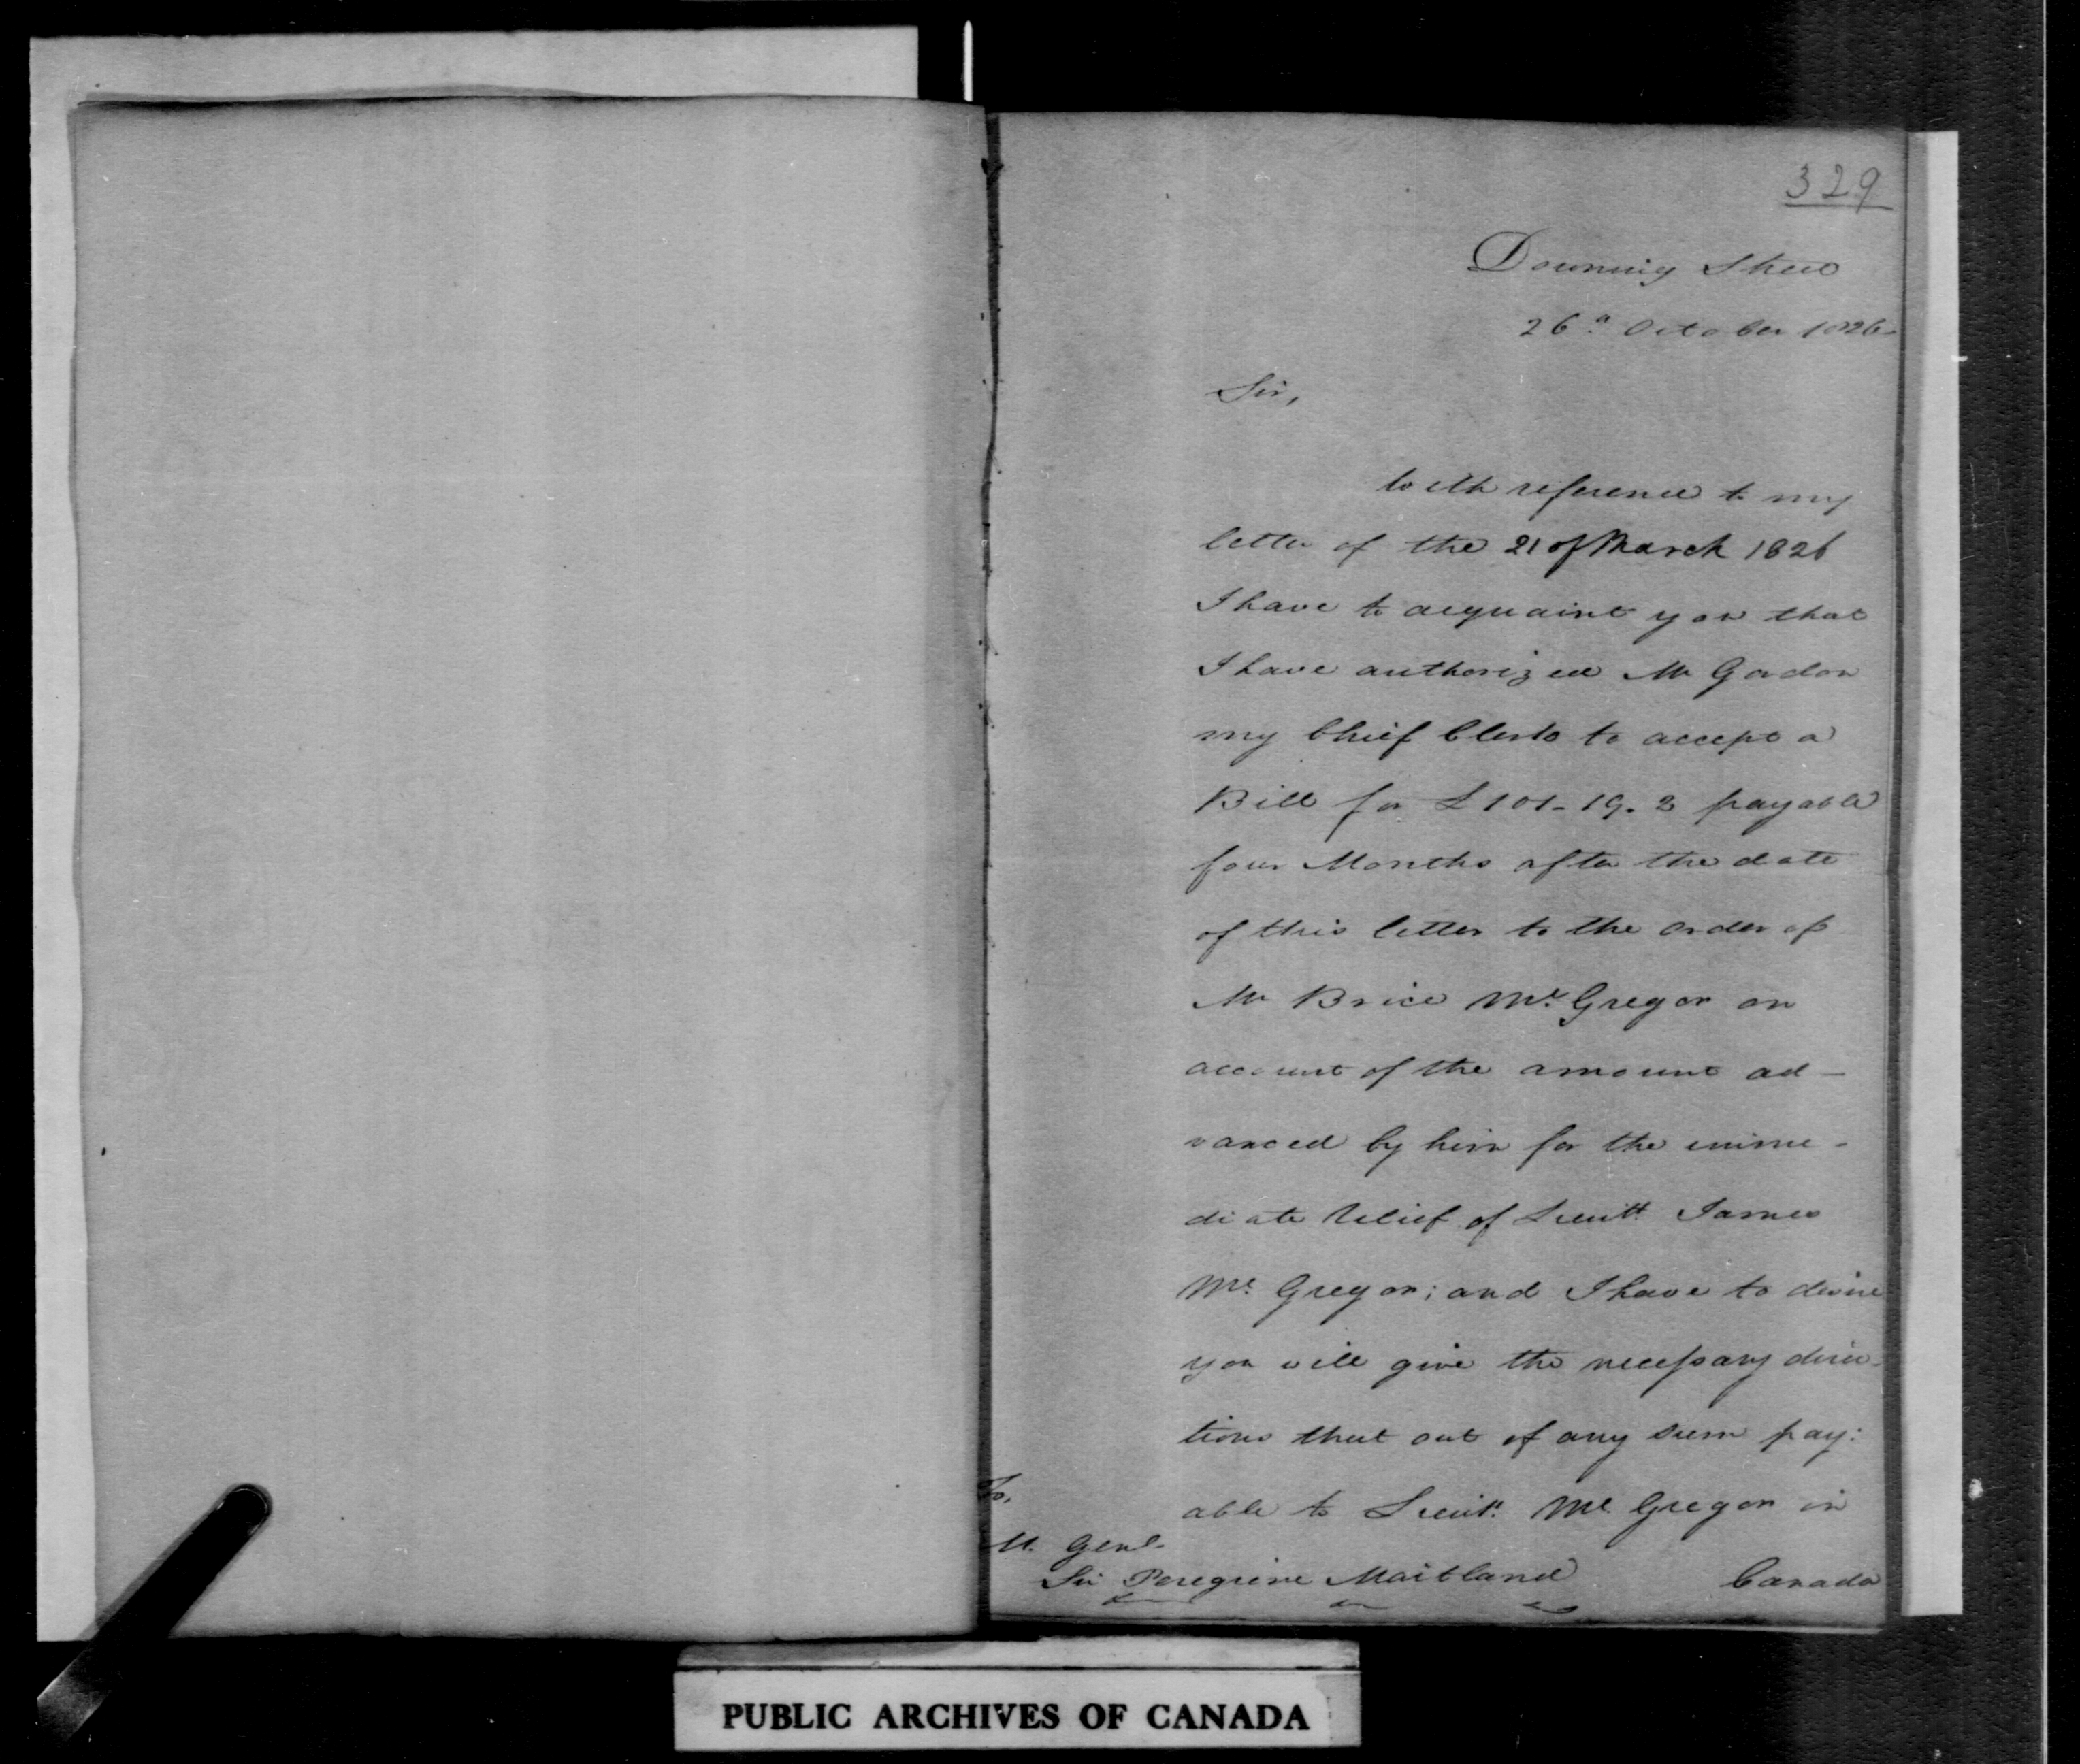 329
Downing Street
26th October 1826
Sir,
With reference to my
letter of the 21 of March 1826
I have to acquaint you that
I have authorized Mr Gordon
my Chief Clerk to accept a
Bill for £101-19.2 payable
four Months after the date
of this letter to the order of
Mr Brice Mc Gregor on
account of the amount ad-
vanced by him for the imme-
diate relief of Lieutt James
Mc Gregor; and I have to desire
you will give the necessary direc-
tions that out of any sum pay:
able to Lieutt Mc Gregor in
Canada
To,
M. Genl.
Sir Peregrine Maitland
PUBLIC ARCHIVES OF CANADA